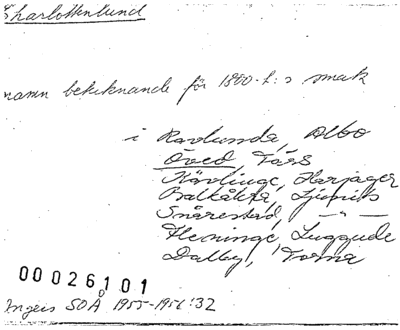 Charlottenlund
namn betecknande för 1800-t:s smak
i Ravlunda, Albo
Öved, Färs
Kävlinge, Harjager
Balkåkra, Ljunits
Snårestad, -"-
Fleninge, Luggude
Dalby, Torna
00026101
Ingers SOÅ 1955-1956:32